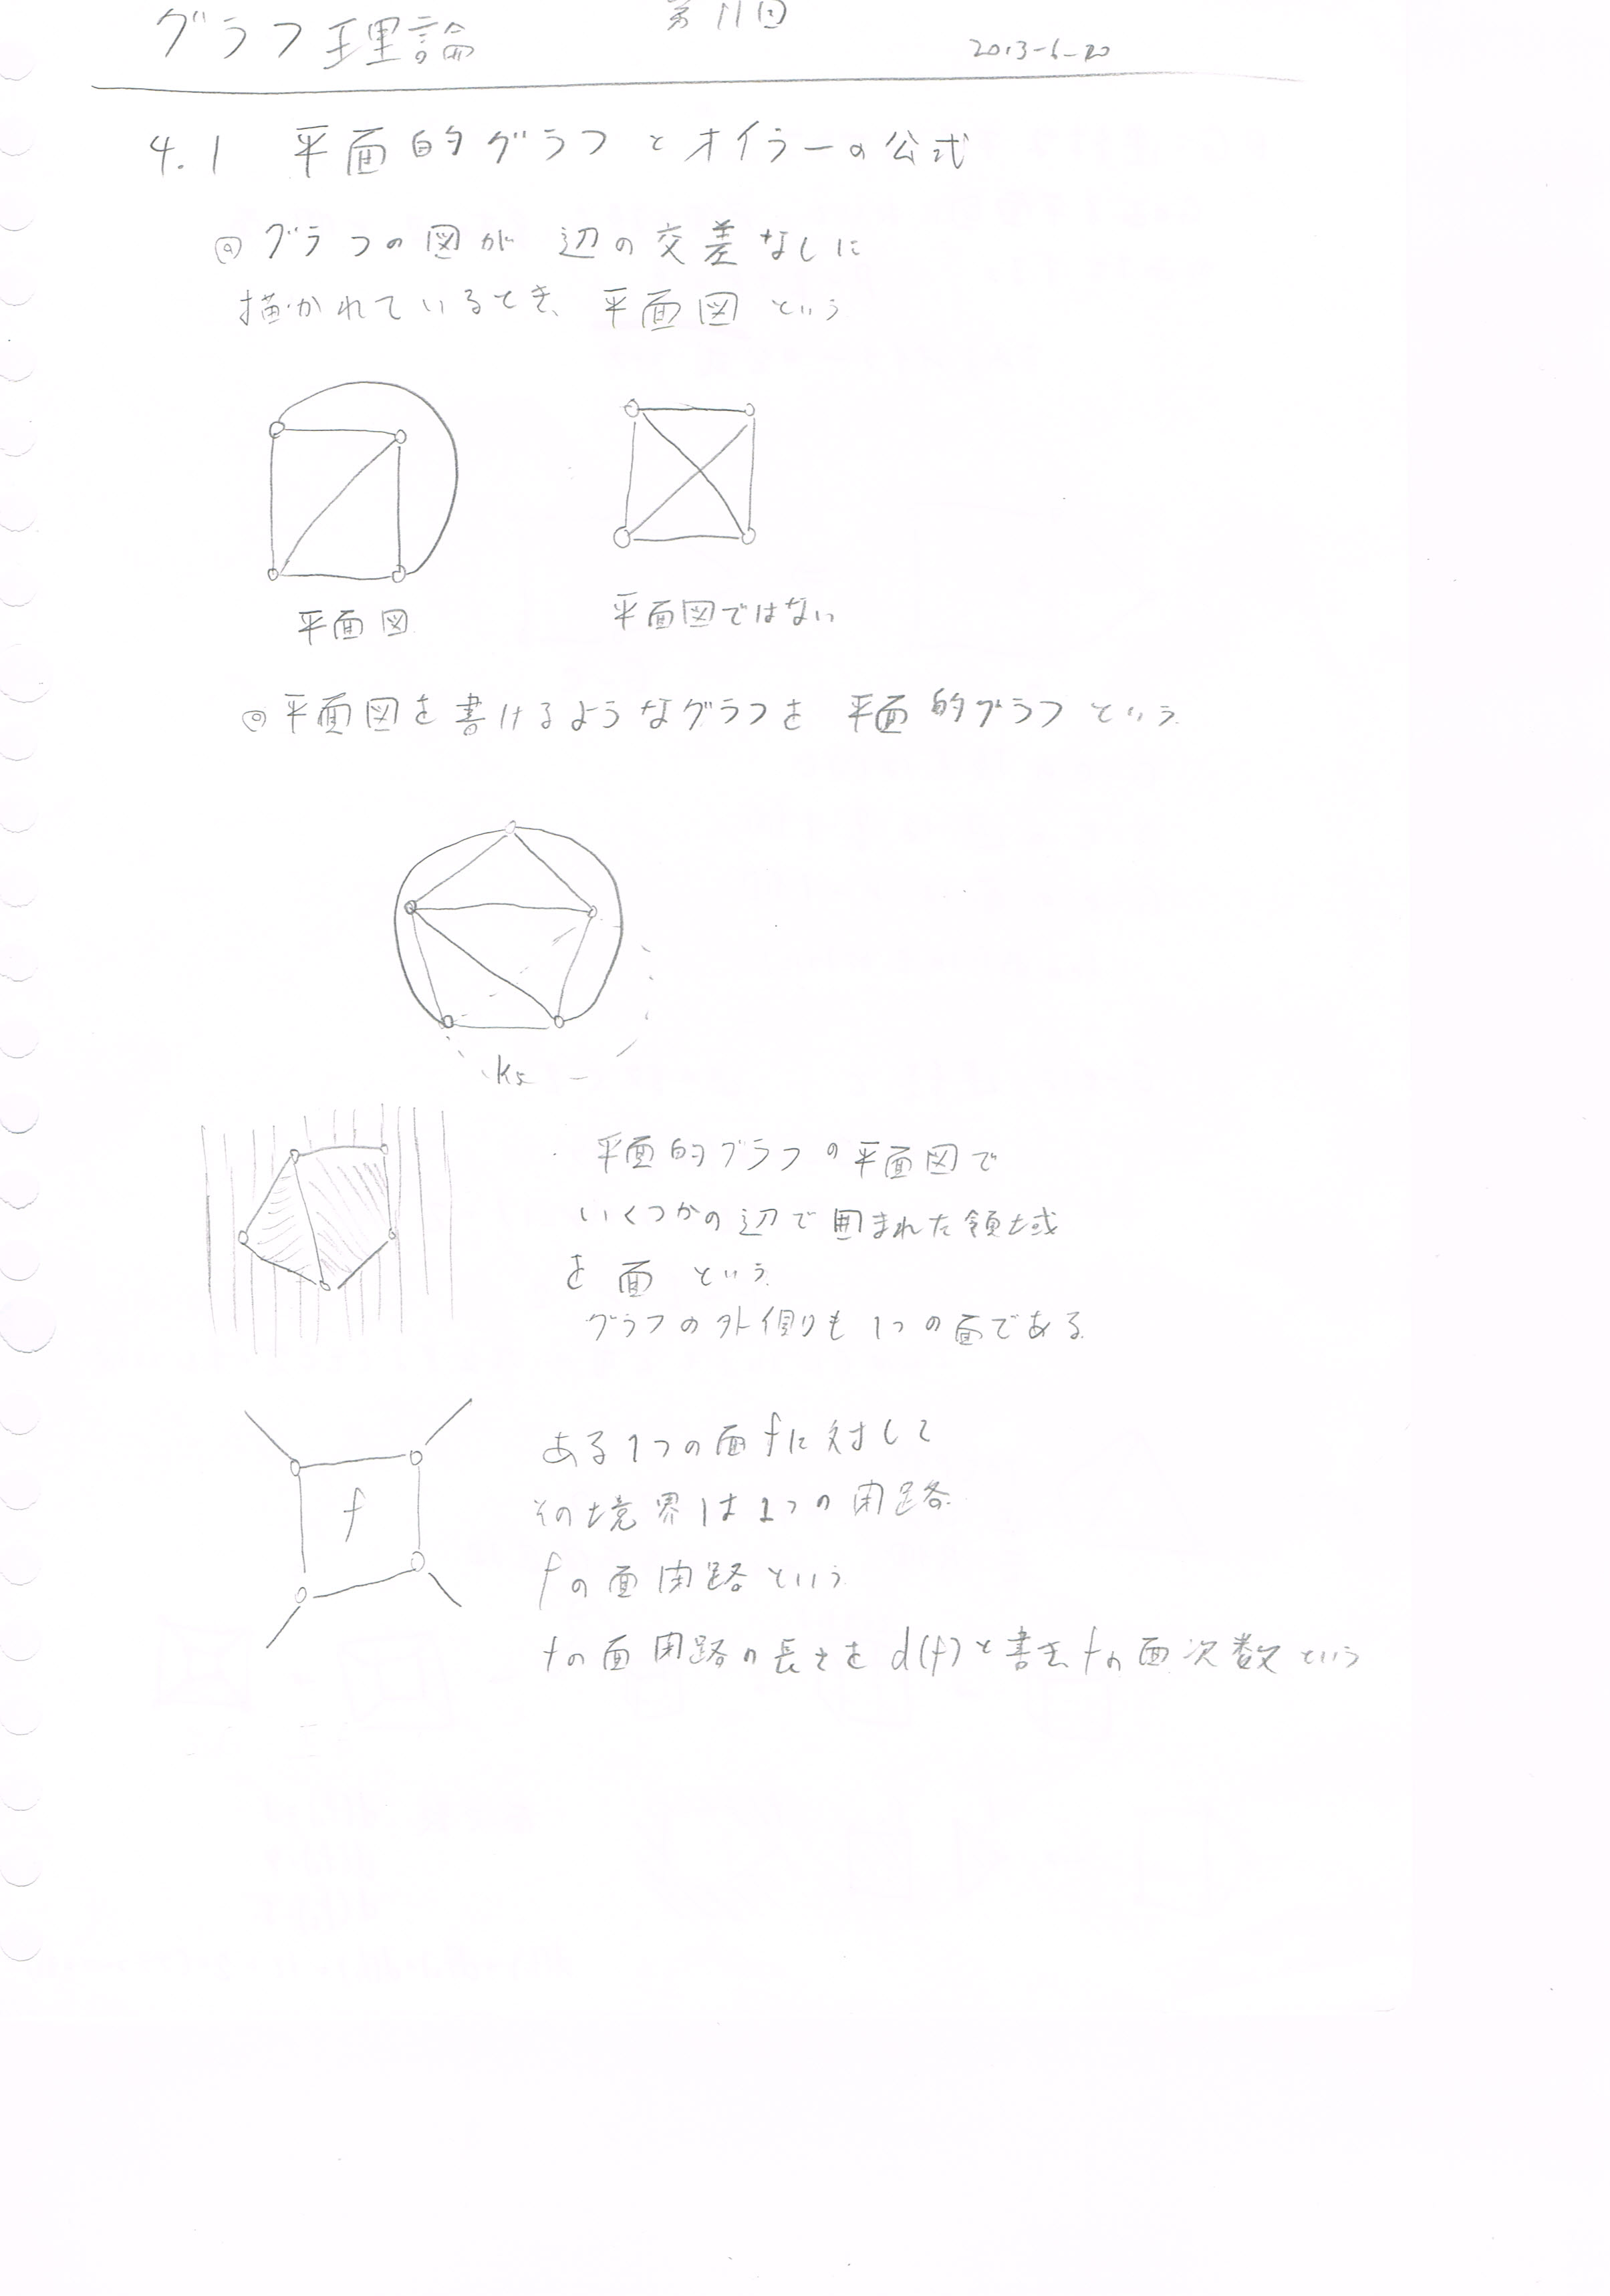 グラフ理論 第11回 2013-6-20
4.1 平面的グラフとオイラーの公式
◎グラフの図が 辺の交差なしに
描かれているとき、平面図という
平面図 平面図ではない
◎平面図を書けるようなグラフを 平面的グラフという
K5
平面的グラフの平面図で
いくつかの辺で囲まれた領域
を面という
グラフの外側も1つの面である
f
ある1つの面fに対して
その境界は1つの閉路
fの面閉路という
fの面閉路の長さをd(f)と書き fの面次数という